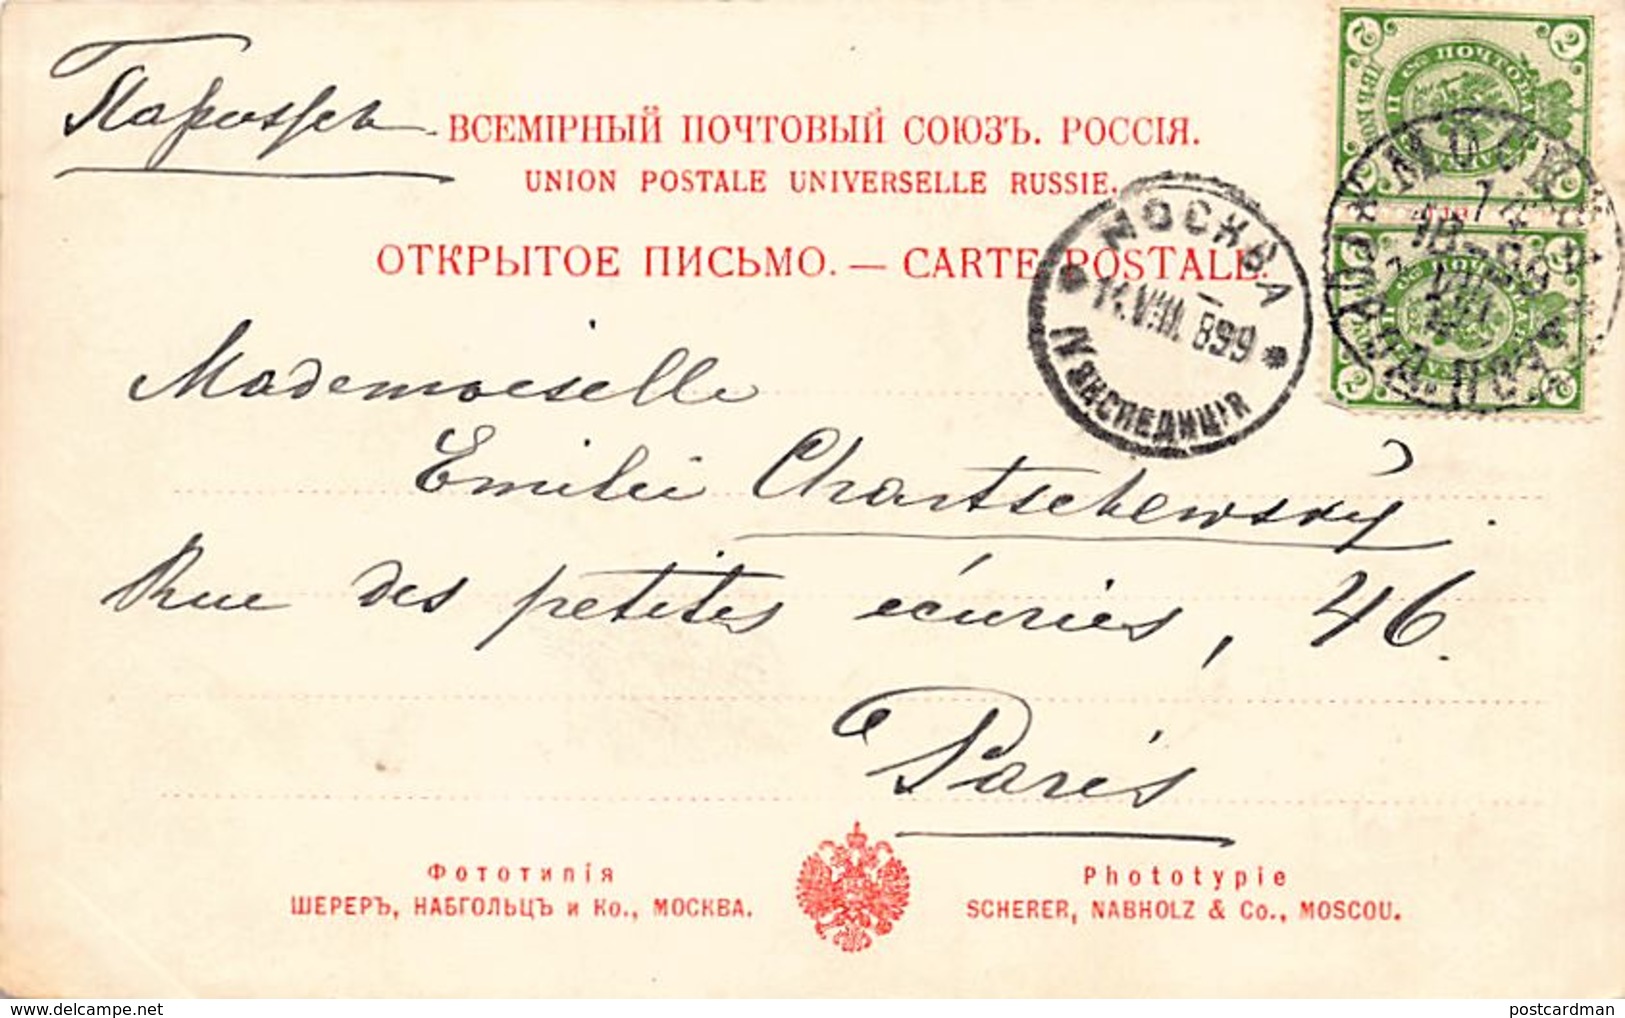 Парижъ.
ВСЕМІРНЫЙ ПОЧТОВЫЙ СОЮЗЪ. РОССІЯ.
UNION POSTALE UNIVERSELLE RUSSIE.
ОТКРЫТОЕ ПИСЬМО. — CARTE POSTALE.
МОСКВА
14.VIII.1899
IV ЭКСПЕДИЦІЯ
2 2
2 2
Mademoiselle
Emilie Chartschewsky.
Rue des petites écuries, 46.
Paris
Фототипія
ШЕРЕРЪ, НАБГОЛЬЦЪ и Ко., МОСКВА.
Phototypie
SCHERER, NABHOLZ & Co., MOSCOU.
delcampe.net
postcardman